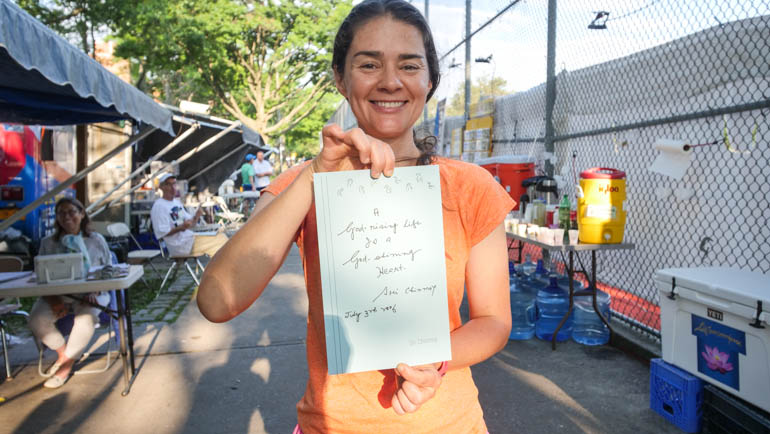 A
God-rising Life
Is a
God-shining
Heart.
Sri Chinmoy
July 3rd
Sri Chinmoy
IGLOO
YETI